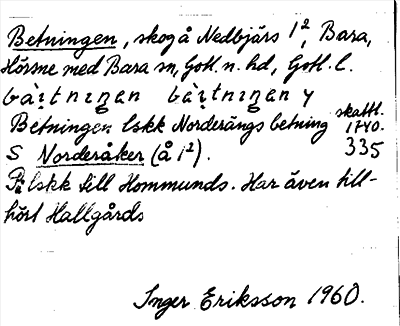 Betningen, skog å Nedbjärs 1², Bara,
Hörsne med Bara sn, Gotl. n. hd, Gotl. l.
bàịtnıŋən bàịtnıŋən y
Betningen lskk Norderängs betning skattl. 1740. 335
S Norderåker (å 1²).
P: lskk till Hommunds. Har även till-
hört Hallgårds
Inger Eriksson 1960.